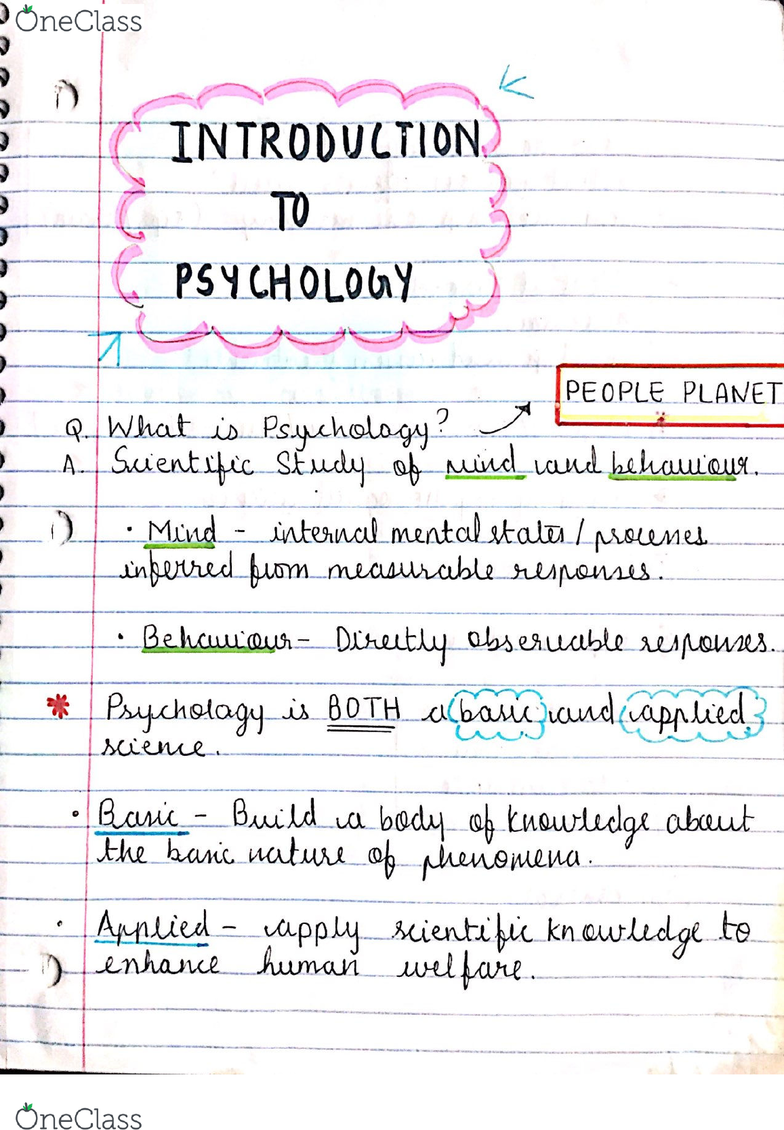 OneClass
INTRODUCTION
TO
PSYCHOLOGY
PEOPLE PLANET
Q. What is Psychology?
A. Scientific Study of mind and behaviour.
• Mind - internal mental states / processes
inferred from measurable responses.
• Behaviour - Directly observable responses.
* Psychology is BOTH a basic and applied
science.
• Basic - Build a body of knowledge about
the basic nature of phenomena.
• Applied - apply scientific knowledge to
enhance human welfare.
OneClass